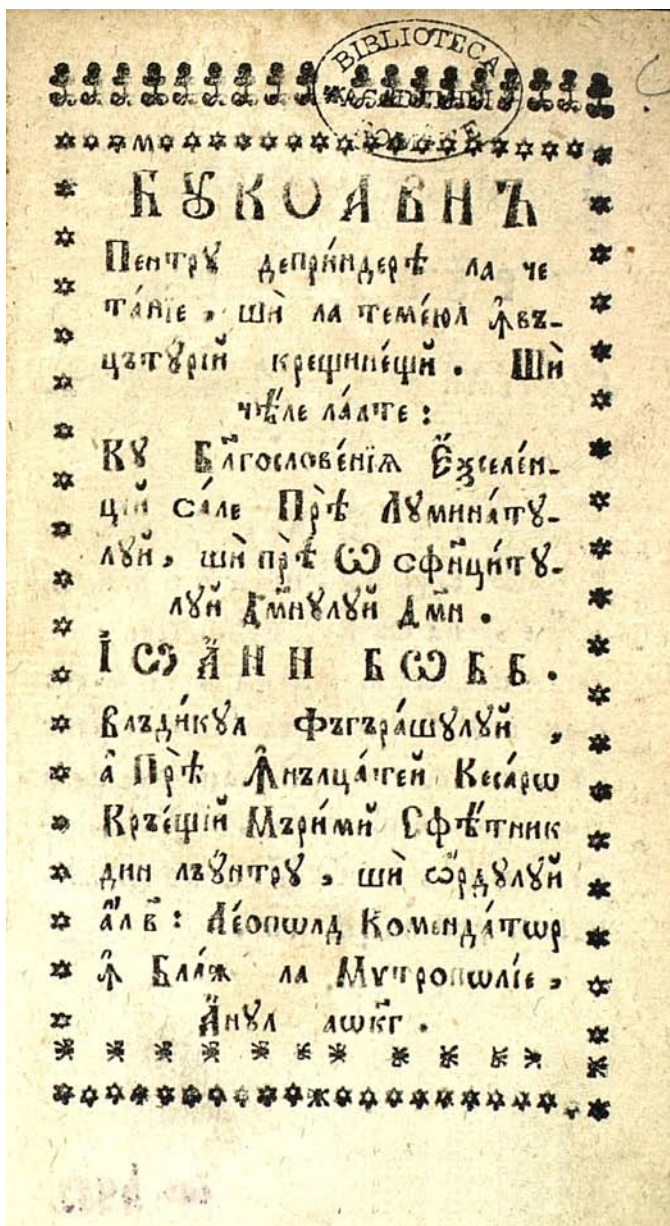 BIBLIOTECA
БꙋКОАВНЪ
Пентрꙋ депри́ндерѣ ла че
та́нїе, шѝ ла теме́юл ꙟвъ-
цътꙋ́рїй крещине́щй. Шѝ
чѣ́ле ла́лте:
Кꙋ Бл҃гослове́нїѧ Е҆ѯселе́н-
цїй са́ле Прѣ̀ Лꙋмина́тꙋ-
лꙋй, шѝ прѣ̀ Ѡ сфи҃ци́тꙋ-
лꙋй Дм҃нꙋлꙋй Дм҃н.
І҆Ѡа҆НН БѠББ.
Влъди́кꙋл Фъгъра́шꙋлꙋй,
а҆ Прѣ̀ Ꙟнълца́тей Кеса́рѡ
Кръе́щїй Мъри́мй Сфѣ́тник
дин лъꙋ́нтрꙋ, шѝ ѡ҆́рдꙋлꙋй
а҆л в҃: Лео́пѡлд Коменда́тѡр
ꙟ Бла́ж ла Митропѡлі́е,
А҆́нꙋл аѡк҃г.